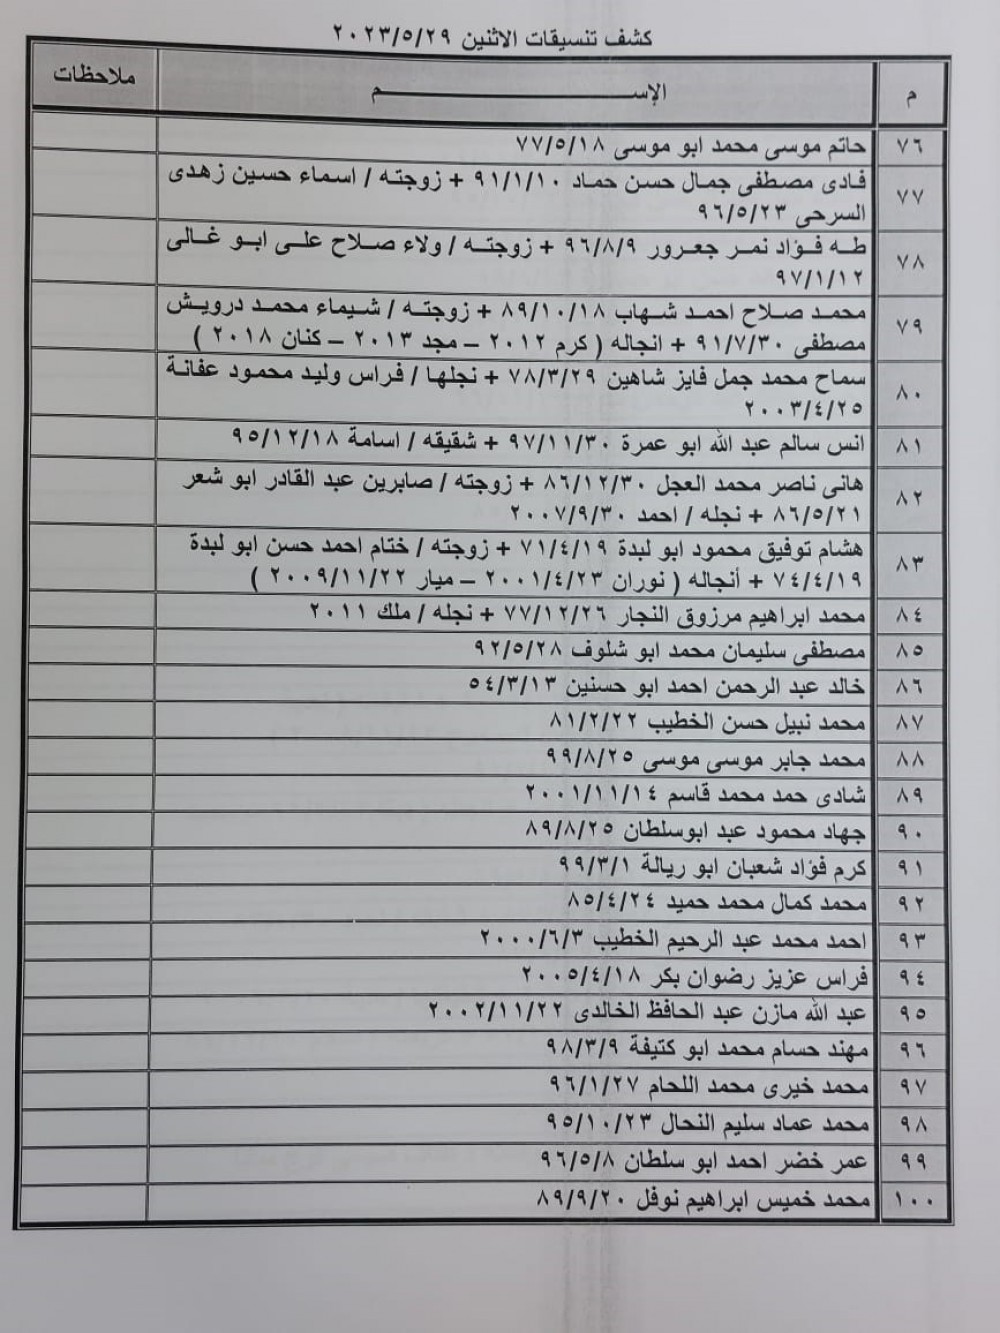 كشف تنسيقات الاثنين ٢٠٢٣/٥/٢٩
م الإســـــــــــــــم ملاحظات
٧٦ حاتم موسى محمد ابو موسى ٧٧/٥/١٨
٧٧ فادى مصطفى جمال حسن حماد ٩١/١/١٠ + زوجته / اسماء حسين زهدى
السرحى ٩٦/٥/٢٣
٧٨ طه فؤاد نمر جعرور ٩٦/٨/٩ + زوجته / ولاء صلاح على ابو غالى
٩٧/١/١٢
٧٩ محمد صلاح احمد شهاب ٨٩/١٠/١٨ + زوجته / شيماء محمد درويش
مصطفى ٩١/٧/٣٠ + انجاله ( كرم ٢٠١٢ – مجد ٢٠١٣ – كنان ٢٠١٨ )
٨٠ سماح محمد جمل فايز شاهين ٧٨/٣/٢٩ + نجلها / فراس وليد محمود عفانة
٢٠٠٣/٤/٢٥
٨١ انس سالم عبد الله ابو عمرة ٩٧/١١/٣٠ + شقيقه / اسامة ٩٥/١٢/١٨
٨٢ هانى ناصر محمد العجل ٨٦/١٢/٣٠ + زوجته / صابرين عبد القادر ابو شعر
٨٦/٥/٢١ + نجله / احمد ٢٠٠٧/٩/٣٠
٨٣ هشام توفيق محمود ابو لبدة ٧١/٤/١٩ + زوجته / ختام احمد حسن ابو لبدة
٧٤/٤/١٩ + أنجاله ( نوران ٢٠٠١/٤/٢٣ – ميار ٢٠٠٩/١١/٢٢ )
٨٤ محمد ابراهيم مرزوق النجار ٧٧/١٢/٢٦ + نجله / ملك ٢٠١١
٨٥ مصطفى سليمان محمد ابو شلوف ٩٢/٥/٢٨
٨٦ خالد عبد الرحمن احمد ابو حسنين ٥٤/٣/١٣
٨٧ محمد نبيل حسن الخطيب ٨١/٢/٢٢
٨٨ محمد جابر موسى موسى ٩٩/٨/٢٥
٨٩ شادى حمد محمد قاسم ٢٠٠١/١١/١٤
٩٠ جهاد محمود عبد ابوسلطان ٨٩/٨/٢٥
٩١ كرم فؤاد شعبان ابو ريالة ٩٩/٣/١
٩٢ محمد كمال محمد حميد ٨٥/٤/٢٤
٩٣ احمد محمد عبد الرحيم الخطيب ٢٠٠٠/٦/٣
٩٤ فراس عزيز رضوان بكر ٢٠٠٥/٤/١٨
٩٥ عبد الله مازن عبد الحافظ الخالدى ٢٠٠٢/١١/٢٢
٩٦ مهند حسام محمد ابو كتيفة ٩٨/٣/٩
٩٧ محمد خيرى محمد اللحام ٩٦/١/٢٧
٩٨ محمد عماد سليم النحال ٩٥/١٠/٢٣
٩٩ عمر خضر احمد ابو سلطان ٩٦/٥/٨
١٠٠ محمد خميس ابراهيم نوفل ٨٩/٩/٢٠